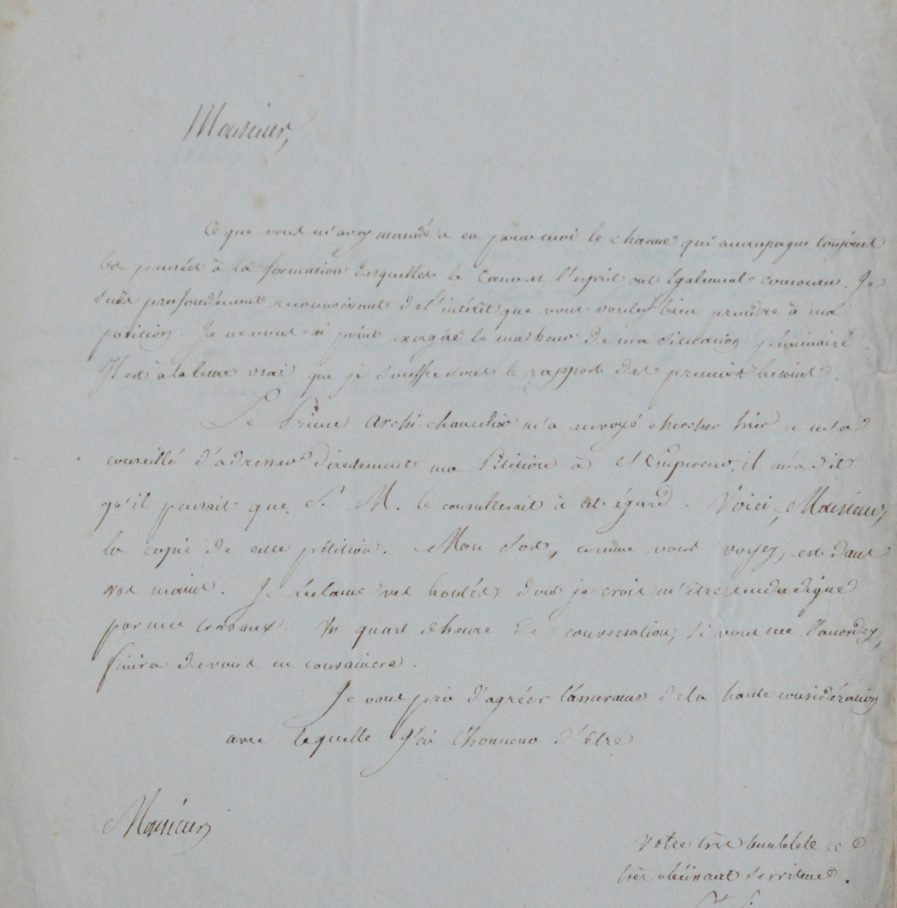 Monsieur,
Ce que vous m'avez mandé a eu pour moi le charme qui accompagne toujours
les pensées à la formation desquelles le Cœur et l'esprit ont également concouru. Je
suis profondément reconnoissant de l'intérêt que vous voulez bien prendre à ma
position. Je ne vous ai point exagéré le malheur de ma Situation pécuniaire.
Il est à la lettre vrai que je souffre sous le rapport des premiers besoins.
Le Prince Archi-chancelier m'a envoyé chercher hier et m'a
conseillé d'adresser directement ma Pétition à l'Empereur; il m'a dit
qu'il pensait que S. M. le consulterait à cet égard. Voici, Monsieur,
la copie de cette pétition. Mon Sort, comme vous voyez, est dans
vos mains. Je réclame vos bontés dont je crois m'être rendu digne
par mes travaux. Un quart d'heure de conversation, si vous me l'accordez,
finira de vous en convaincre.
Je vous prie d'agréer l'assurance de la haute considération
avec laquelle J'ai l'honneur d'être
Monsieur,
Votre très humble et
très obéissant Serviteur.